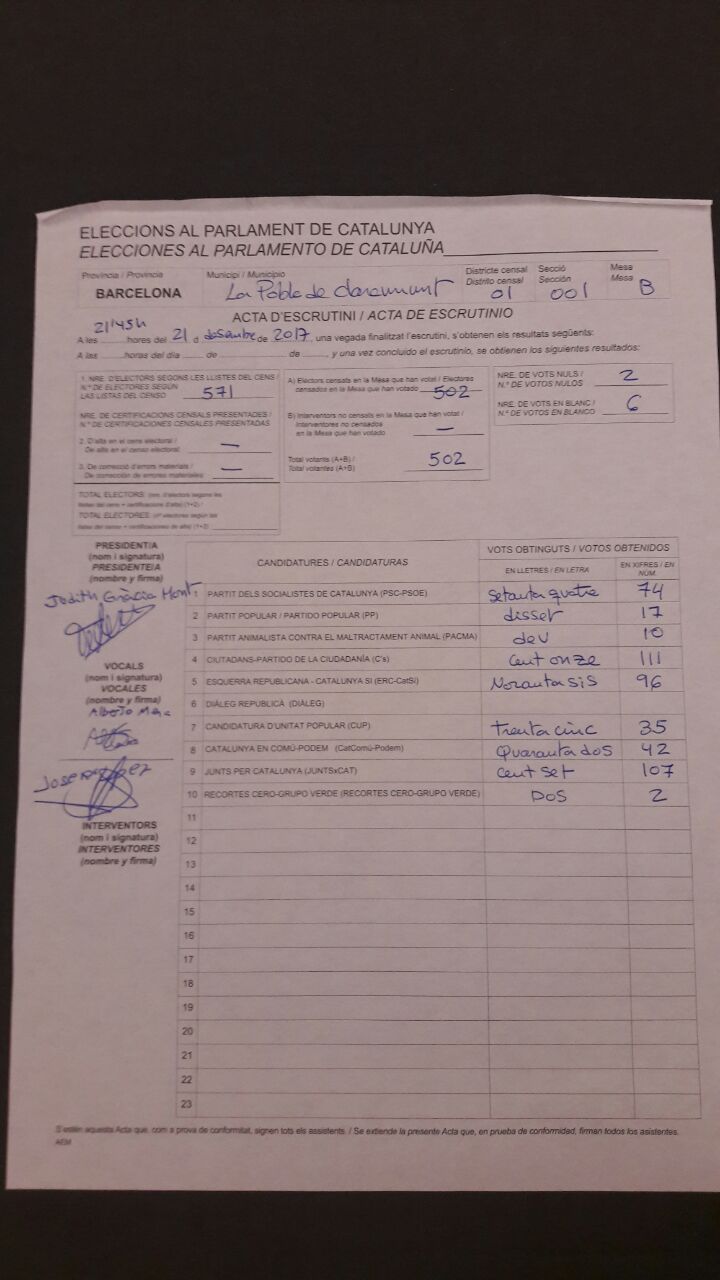 ELECCIONS AL PARLAMENT DE CATALUNYA
ELECCIONES AL PARLAMENTO DE CATALUÑA
Província / Provincia Municipi / Municipio Districte censal Secció Mesa
Distrito censal Sección Mesa
BARCELONA La Pobla de Claramunt 01 001 B
ACTA D'ESCRUTINI / ACTA DE ESCRUTINIO
21'45h
A les hores del 21 d desembre de 2017, una vegada finalitzat l'escrutini, s'obtenen els resultats següents:
A las horas del día de de , y una vez concluido el escrutinio, se obtienen los siguientes resultados:
1. NRE. D'ELECTORS SEGONS LES LLISTES DEL CENS /
N.º DE ELECTORES SEGÚN
LAS LISTAS DEL CENSO 571
NRE. DE CERTIFICACIONS CENSALS PRESENTADES /
N.º DE CERTIFICACIONES CENSALES PRESENTADAS
2. D'alta en el cens electoral /
De alta en el censo electoral: —
3. De correcció d'errors materials /
De corrección de errores materiales: —
TOTAL ELECTORS: (nre. d'electors segons les
llistes del cens + certificacions d'alta) (1+2) /
TOTAL ELECTORES: (nº electores según las
listas del censo + certificaciones de alta) (1+2)
A) Electors censats en la Mesa que han votat / Electores
censados en la Mesa que han votado 502
B) Interventors no censats en la Mesa que han votat /
Interventores no censados
en la Mesa que han votado —
Total votants (A+B) /
Total votantes (A+B) 502
NRE. DE VOTS NULS /
N.º DE VOTOS NULOS 2
NRE. DE VOTS EN BLANC /
N.º DE VOTOS EN BLANCO 6
PRESIDENT/A
(nom i signatura)
PRESIDENTE/A
(nombre y firma)
Judith Gràcia Mont
VOCALS
(nom i signatura)
VOCALES
(nombre y firma)
Alberto
INTERVENTORS
(nom i signatura)
INTERVENTORES
(nombre y firma)
CANDIDATURES / CANDIDATURAS VOTS OBTINGUTS / VOTOS OBTENIDOS
EN LLETRES / EN LETRA EN XIFRES / EN NÚM.
1 PARTIT DELS SOCIALISTES DE CATALUNYA (PSC-PSOE) setanta quatre 74
2 PARTIT POPULAR / PARTIDO POPULAR (PP) disset 17
3 PARTIT ANIMALISTA CONTRA EL MALTRACTAMENT ANIMAL (PACMA) deu 10
4 CIUTADANS-PARTIDO DE LA CIUDADANÍA (C's) cent onze 111
5 ESQUERRA REPUBLICANA - CATALUNYA SÍ (ERC-CatSí) Noranta sis 96
6 DIÀLEG REPUBLICÀ (DIÀLEG)
7 CANDIDATURA D'UNITAT POPULAR (CUP) trenta cinc 35
8 CATALUNYA EN COMÚ-PODEM (CatComú-Podem) Quaranta dos 42
9 JUNTS PER CATALUNYA (JUNTSxCAT) cent set 107
10 RECORTES CERO-GRUPO VERDE (RECORTES CERO-GRUPO VERDE) DOS 2
11
12
13
14
15
16
17
18
19
20
21
22
23
S'estén aquesta Acta que, com a prova de conformitat, signen tots els assistents. / Se extiende la presente Acta que, en prueba de conformidad, firman todos los asistentes.
AEM